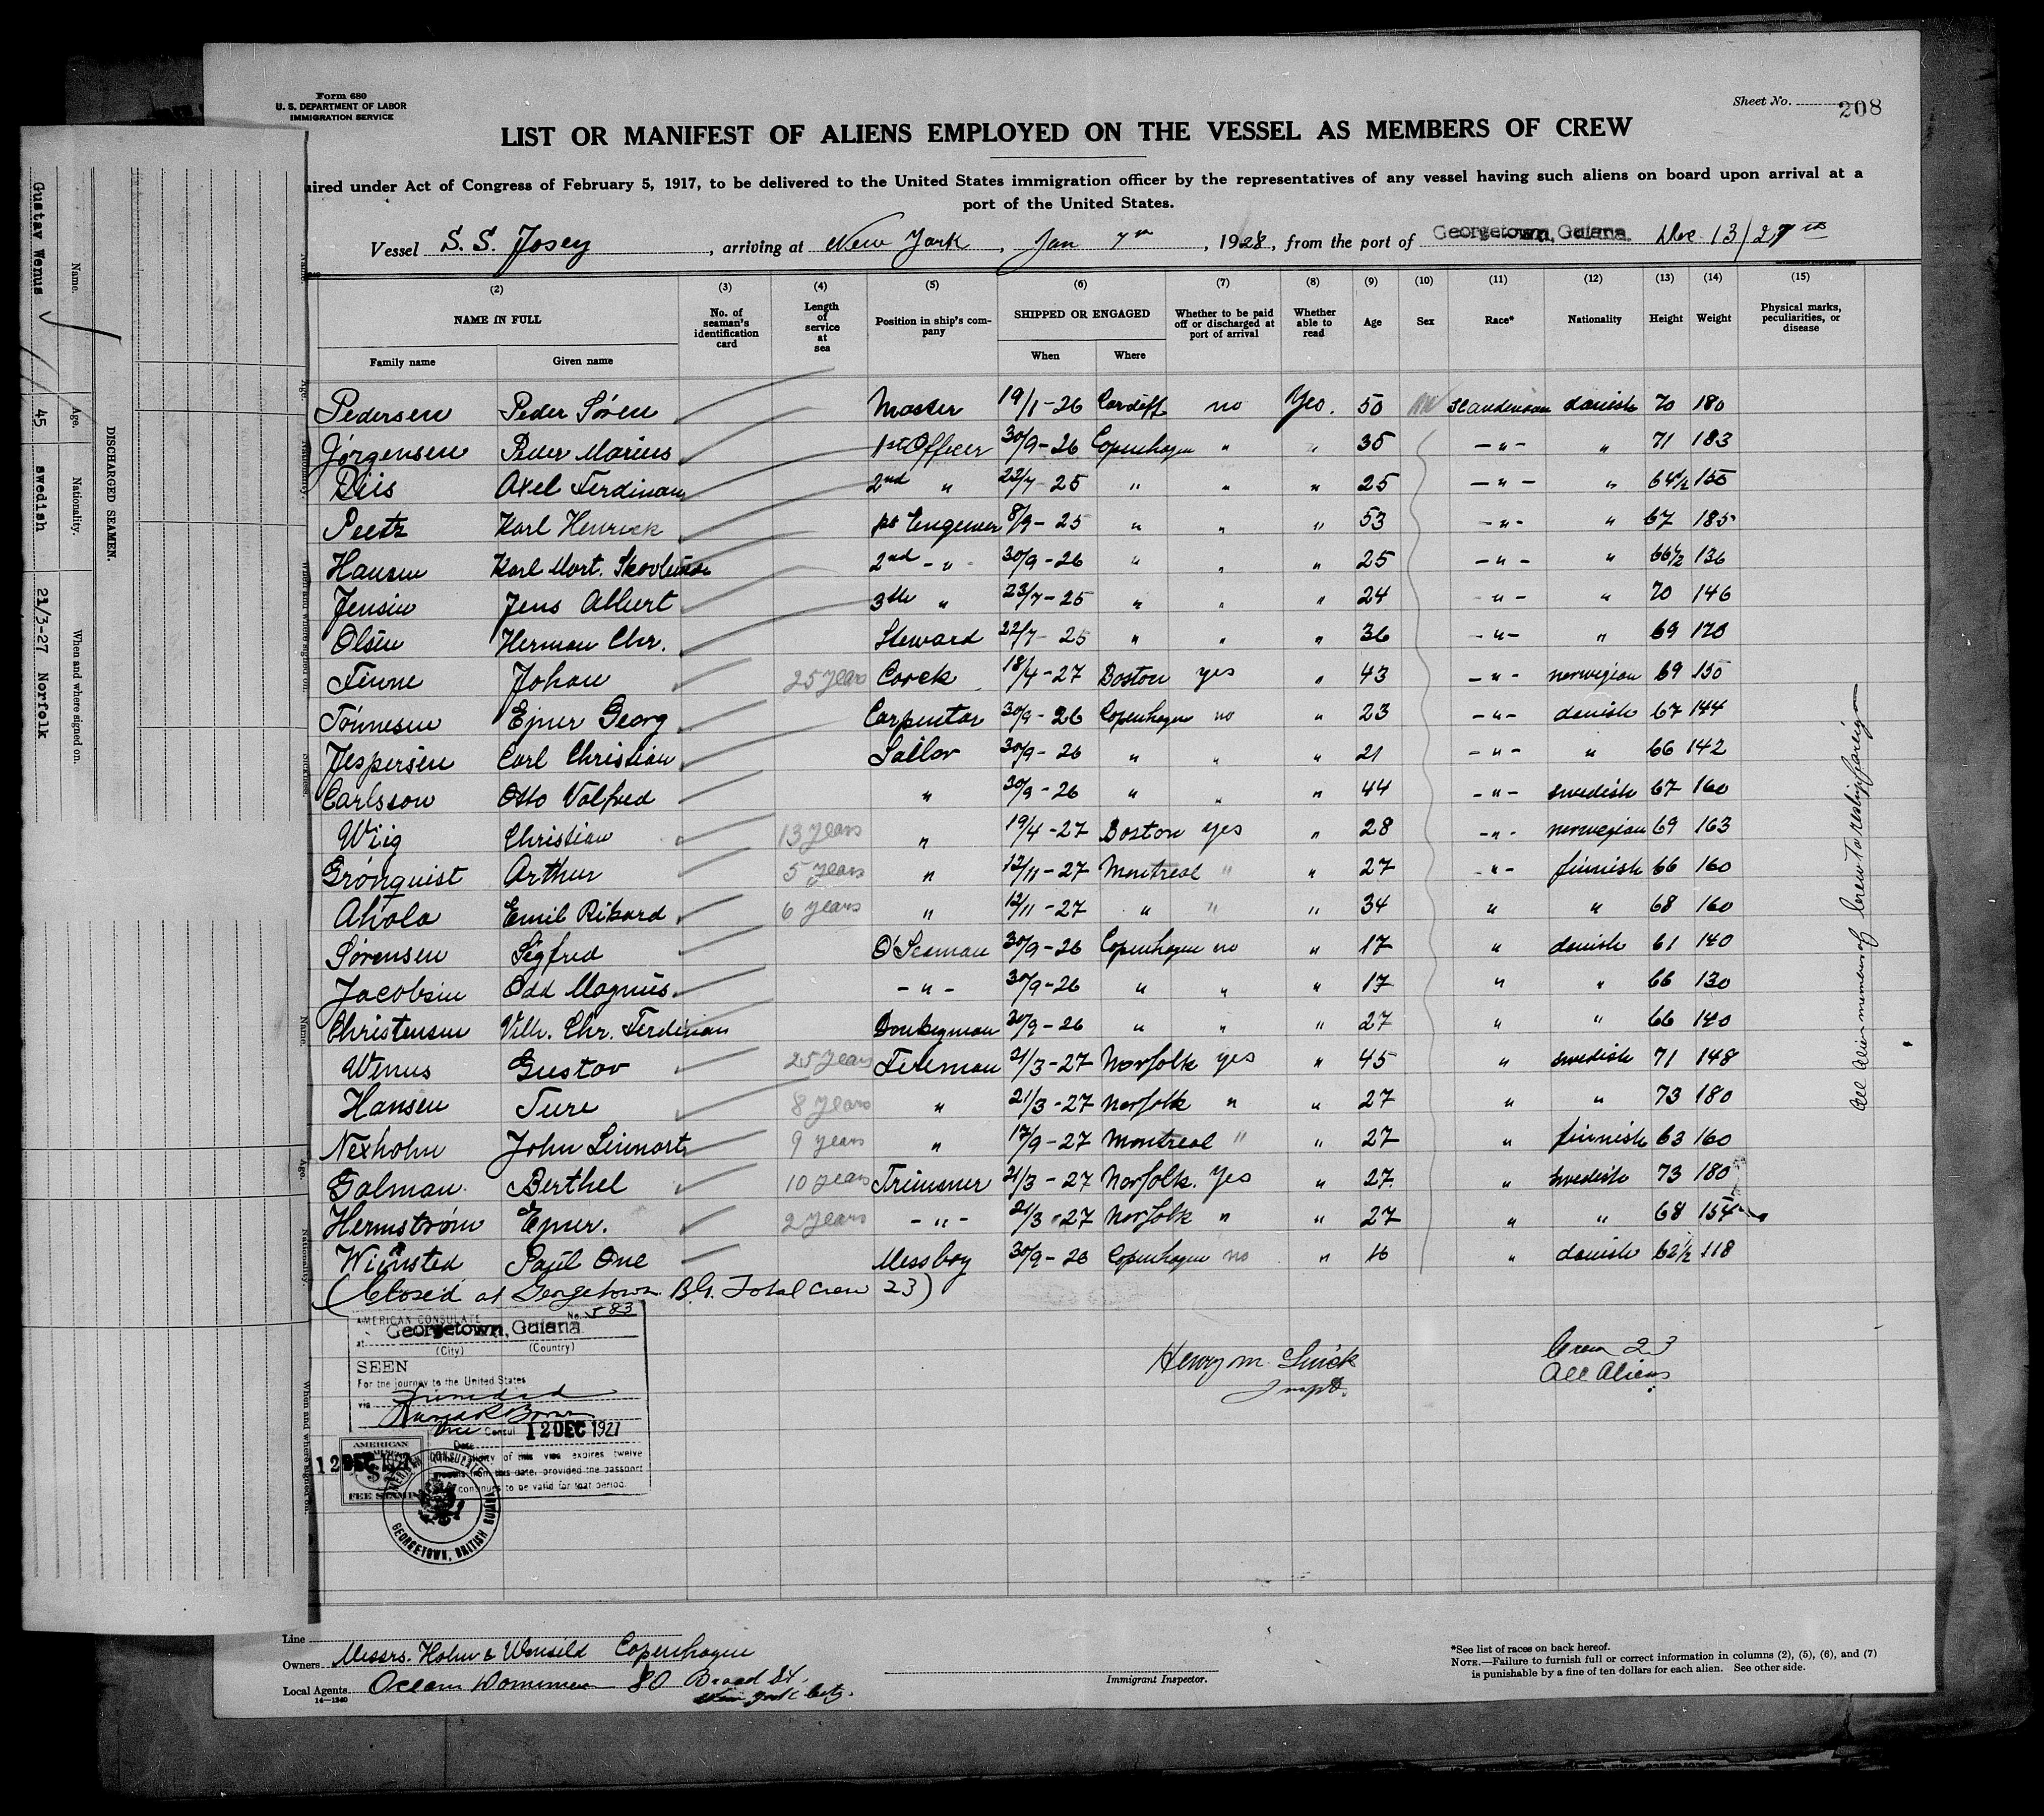 Form 680
U. S. DEPARTMENT OF LABOR
IMMIGRATION SERVICE
Sheet No.
208
LIST OR MANIFEST OF ALIENS EMPLOYED ON THE VESSEL AS MEMBERS OF CREW
uired under Act of Congress of February 5, 1917, to be delivered to the United States immigration officer by the representatives of any vessel having such aliens on board upon arrival at a
port of the United States.
Vessel S. S. Josey, arriving at New York, Jan 7th, 1928, from the port of Georgetown, Guiana. Dec 13/27
(2) (3) (4) (5) (6) (7) (8) (9) (10) (11) (12) (13) (14) (15)
NAME IN FULL
Family name Given name
No. of seaman's identification card
Length of service at sea
Position in ship's company
SHIPPED OR ENGAGED
When Where
Whether to be paid off or discharged at port of arrival
Whether able to read
Age
Sex
Race*
Nationality
Height
Weight
Physical marks, peculiarities, or disease
Pedersen Peder Sören Master 19/1-26 Cardiff no Yes. 50 m Scandinavian danish 70 180
Jørgensen Peder Marius 1st Officer 30/9-26 Copenhagen " " 35 -"- " 71 183
Diis Axel Ferdinand 2nd " 22/7-25 " " " 25 -"- " 64½ 155
Peetz Karl Henrick 1st Engeneer 8/9-25 " " " 53 -"- " 67 185
Hansen Karl Mort. 2nd -"- 30/9-26 " " " 25 -"- " 66½ 136
Jensen Jens Albert 3th " 23/7-25 " " " 24 -"- " 70 146
Olsen Herman Chr. Steward 22/7-25 " " " 36 -"- " 69 170
Finne Johan 25 years Coock 18/4-27 Boston yes " 43 -"- norwegian 69 150
Tönnesen Ejner Georg Carpentar 30/9-26 Copenhagen no " 23 -"- danish 67 144
Jespersen Carl Christian Sailor 30/9-26 " " " 21 -"- " 66 142
Carlsson Otto Valfred " 30/9-26 " " " 44 -"- swedish 67 160
Wiig Christian 13 years " 19/4-27 Boston yes " 28 -"- norwegian 69 163
Grönquist Arthur 5 years " 12/11-27 Montreal " " 27 -"- finnish 66 160
Ahola Emil Rikard 6 years " 12/11-27 " " " 34 " " 68 160
Sørensen Sigfred O'Seaman 30/9-26 Copenhagen no " 17 " danish 61 140
Jacobsen Odd Magnus -"- 30/9-26 " " " 17 " " 66 130
Christensen Vilh. Chr. Ferdinan Donkeyman 30/9-26 " " " 27 " " 66 140
Wenus Gustav 25 years Fireman 21/3-27 Norfolk yes " 45 " swedish 71 148
Hansen Ture 8 years " 21/3-27 Norfolk " " 27 " " 73 180
Nexholm John Linnart 9 years " 17/9-27 Montreal " " 27 " finnish 63 160
Galman Berthel 10 years Trimmer 21/3-27 Norfolk. Yes " 27 " swedish 73 180
Hermstrøm Ejner. 2 years -"- 21/3-27 Norfolk " " 27 " " 68 154
Winsted Paul One Messboy 30/9-26 Copenhagen no " 16 " danish 62½ 118
(Closed at Georgetown B.G. Total Crew 23)
AMERICAN CONSULATE No. 583
at Georgetown, Guiana
(City) (Country)
SEEN
For the journey to the United States
via Trinidad
Vice Consul 12 DEC 1927
Date
validity of this visa expires twelve
months from this date, provided the passport
continues to be valid for that period.
12 DEC 1927
AMERICAN
FEE STAMP
AMERICAN CONSULATE
GEORGETOWN, BRITISH GUIANA
Henry M.
Inspt.
Crew 23
All Aliens
All Alien members of Crew to reship foreign
Line
Owners Messrs. Holm & Wonsild Copenhagen
Local Agents Ocean Dominion 80 Broad St.
New York City.
14-1240
Immigrant Inspector.
*See list of races on back hereof.
NOTE.—Failure to furnish full or correct information in columns (2), (5), (6), and (7)
is punishable by a fine of ten dollars for each alien. See other side.
DISCHARGED SEAMEN.
Name. Age. Nationality. When and where signed on.
Gustav Wenus 45 swedish 21/3-27 Norfolk